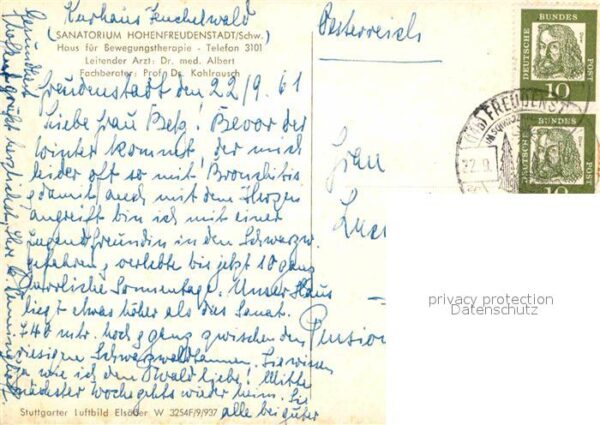 Kurhaus Teuchelwald
(SANATORIUM HOHENFREUDENSTADT/Schw.)
Haus für Bewegungstherapie - Telefon 3101
Leitender Arzt: Dr. med. Albert
Fachberater: Prof. Dr. Kohlrausch
Freudenstadt den 22/9. 61
Liebe Frau Betz! Bevor der
Winter kommt, der mich
leider oft so mit Bronchitis
damit auch mit dem Herzen
angreift bin ich mit einer
Jugendfreundin in den Schwarzw.
gefahren, verlebte bis jetzt 10 ganz
herrliche Sonnentage. Unser Haus
liegt etwas höher als dies Sanat.
740 mtr. hoch ganz zwischen den
riesigen Schwarzwaldtannen. Sie wissen
ja wie ich den Wald liebe! Mitte
nächster Woche gehts wieder heim.
alle bei guter
Gesundheit
grüßt herzlichst, Ihre
Stuttgarter Luftbild Elsäßer W 3254F/9/937
Österreich
Frau
Pension
DEUTSCHE BUNDES POST
10
DEUTSCHE BUNDES POST
10
FREUDENST
privacy protection
Datenschutz